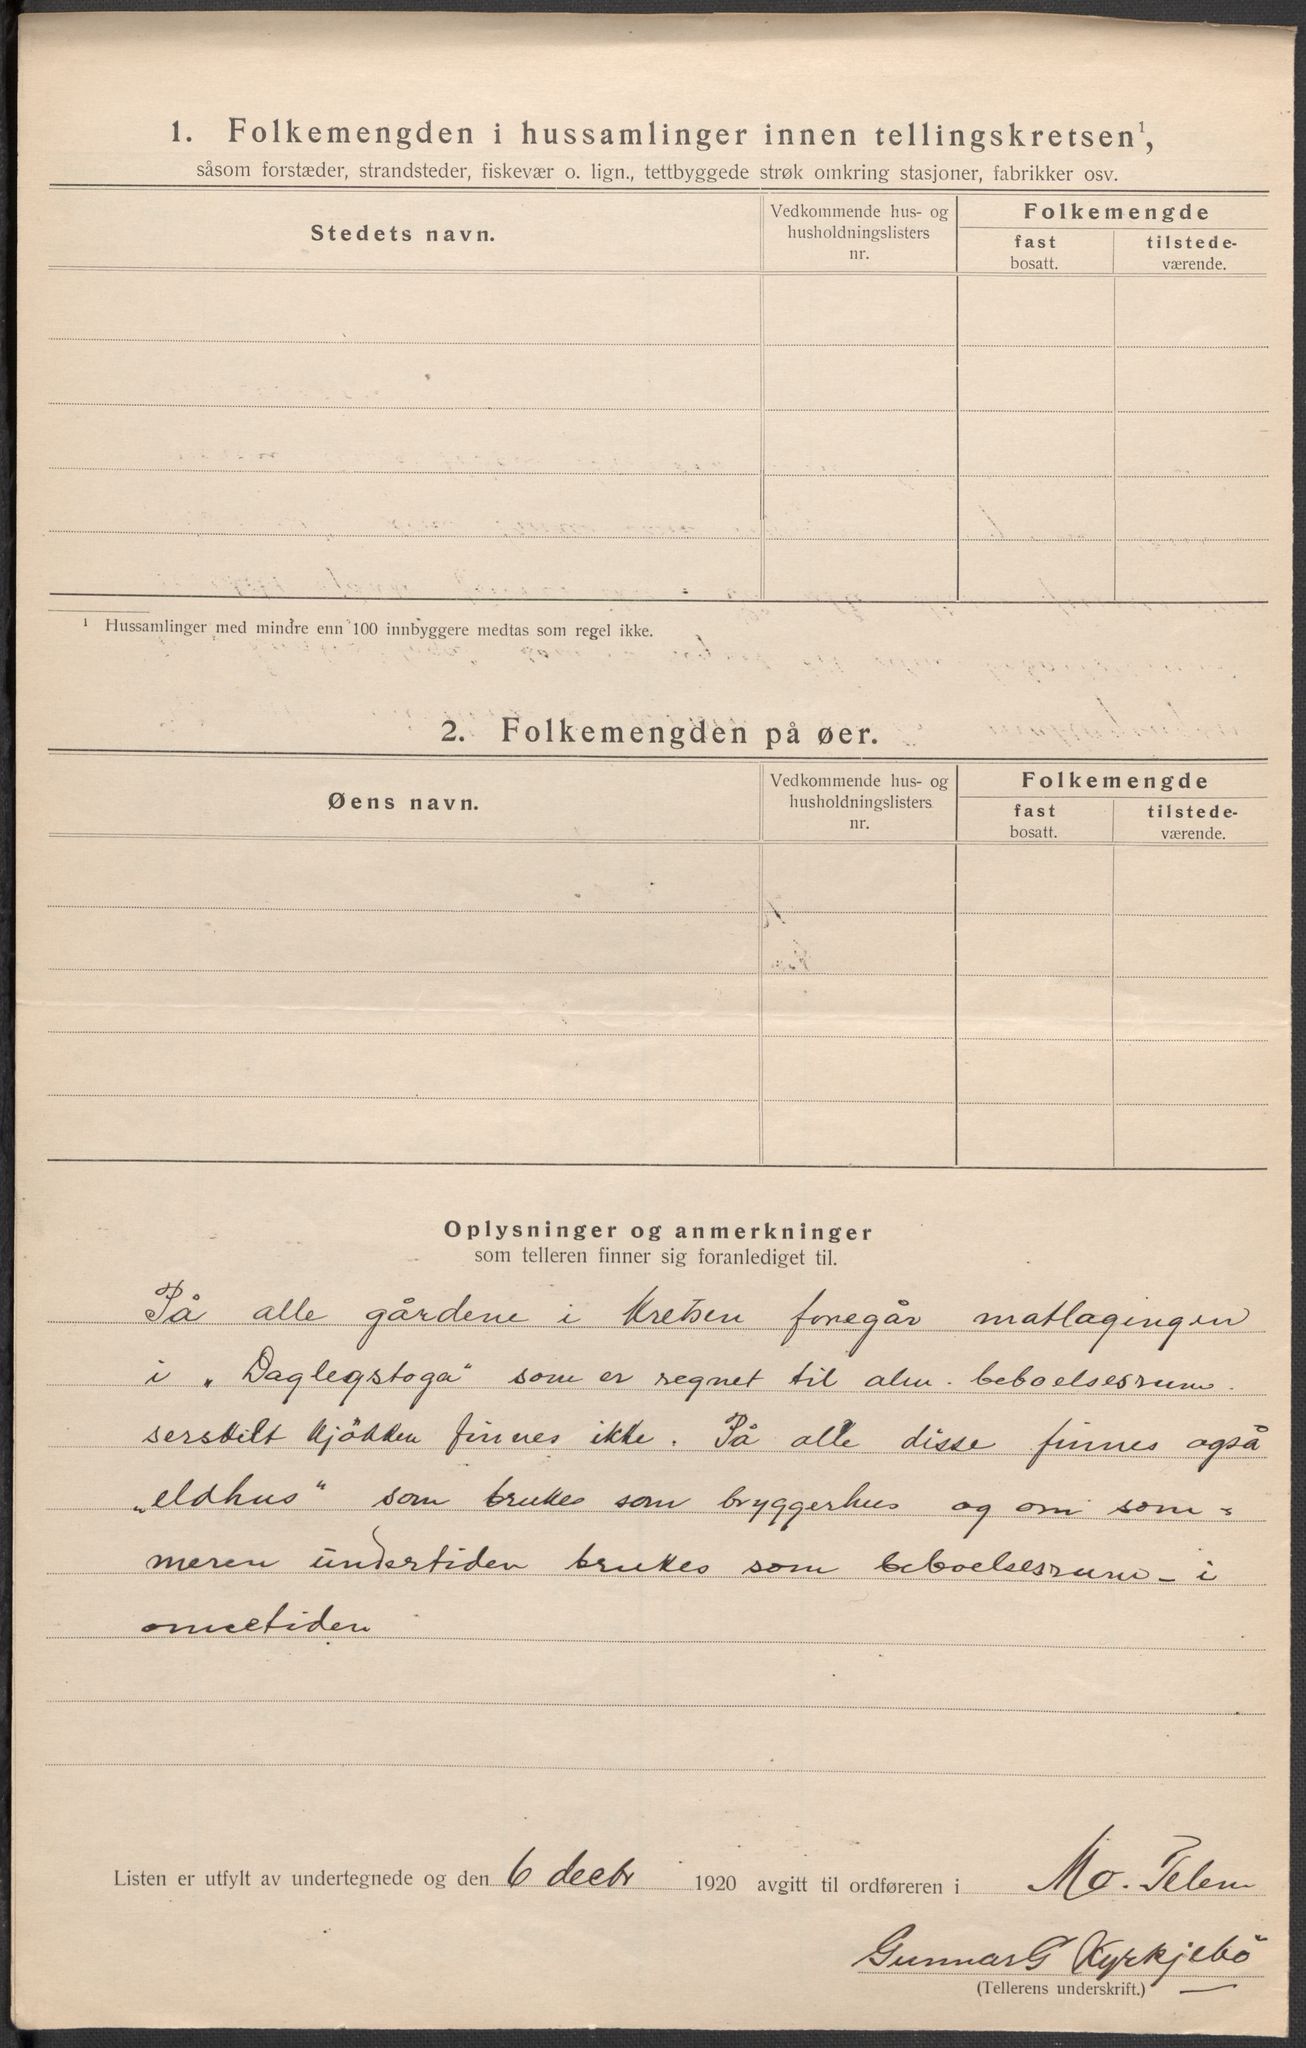 1. Folkemengden i hussamlinger innen tellingskretsen¹,
såsom forstæder, strandsteder, fiskevær o. lign., tettbyggede strøk omkring stasjoner, fabrikker osv.
Stedets navn.
Vedkommende hus- og
husholdningslisters
nr.
Folkemengde
fast
bosatt.
tilstede-
værende.
¹ Hussamlinger med mindre enn 100 innbyggere medtas som regel ikke.
2. Folkemengden på øer.
Øens navn.
Vedkommende hus- og
husholdningslisters
nr.
Folkemengde
fast
bosatt.
tilstede-
værende.
Oplysninger og anmerkninger
som telleren finner sig foranlediget til.
På alle gårdene i kretsen foregår matlagingen
i „Daglegstoga“ som er regnet til alm. beboelsesrum.
serskilt kjökken finnes ikke. På alle disse finnes også
„eldhus“ som brukes som bryggerhus og om som=
meren undertiden brukes som beboelsesrum - i
onnetiden
Listen er utfylt av undertegnede og den 6 decbr 1920 avgitt til ordføreren i Mo. Telem
Gunnar G Kyrkjebö
(Tellerens underskrift.)